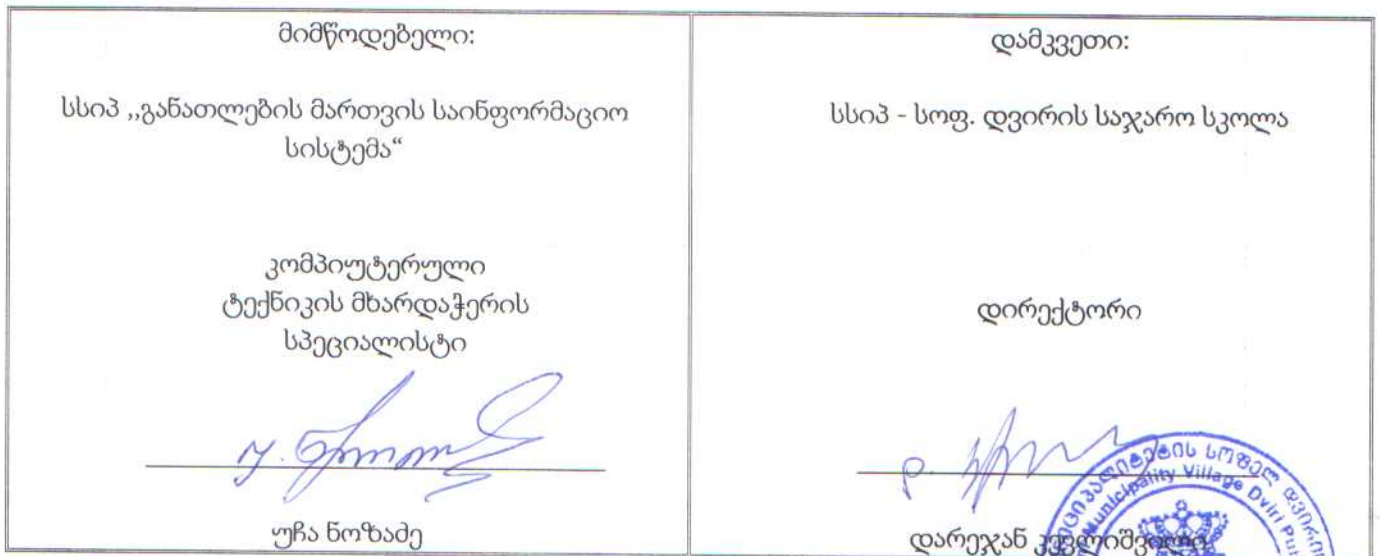 მიმწოდებელი:
სსიპ ,,განათლების მართვის საინფორმაციო
სისტემა“
კომპიუტერული
ტექნიკის მხარდაჭერის
სპეციალისტი
უჩა ნოზაძე
დამკვეთი:
სსიპ - სოფ. დვირის საჯარო სკოლა
დირექტორი
დარეჯან
ის სოფელ დვირი
Municipality Village Dviri Pu